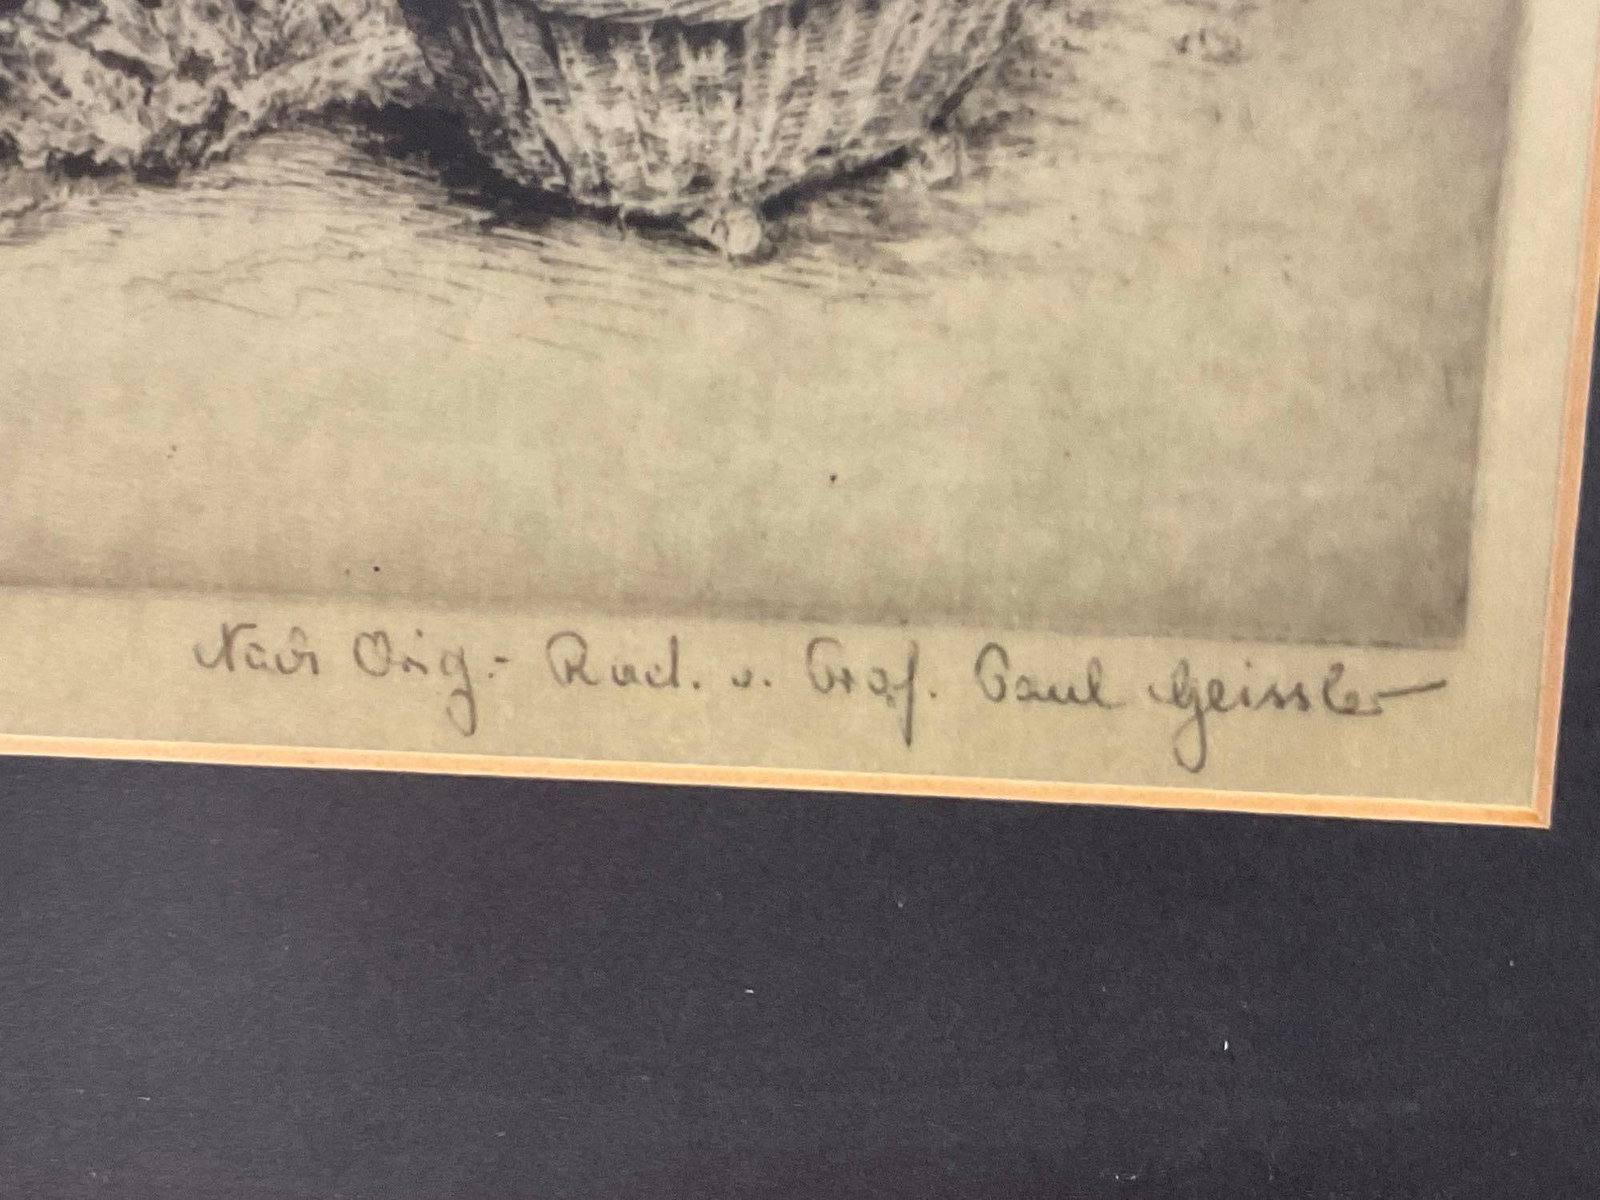 Nach Orig.- Rad. v. Prof. Paul Geissler